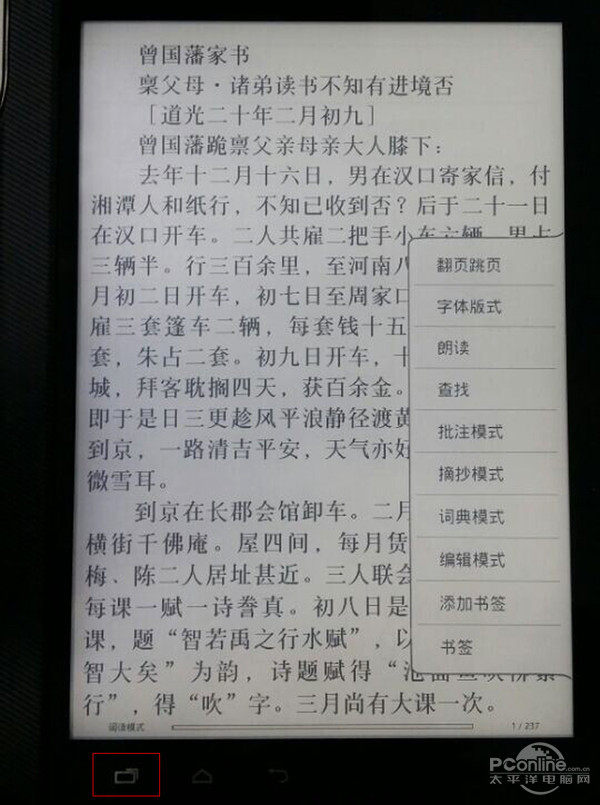 曾国藩家书
禀父母·诸弟读书不知有进境否
［道光二十年二月初九］
曾国藩跪禀父亲母亲大人膝下：
去年十二月十六日，男在汉口寄家信，付
湘潭人和纸行，不知已收到否？后于二十一日
在汉口开车。二人共雇二把手小车六辆，男占
三辆半。行三百余里，至河南八
月初二日开车，初七日至周家口
雇三套篷车二辆，每套钱十五
套，朱占二套。初九日开车，十
城，拜客耽搁四天，获百余金。
即于是日三更趁风平浪静径渡黄
到京，一路清吉平安，天气亦好
微雪耳。
到京在长郡会馆卸车。二月
横街千佛庵。屋四间，每月赁
梅、陈二人居址甚近。三人联会
每课一赋一诗誊真。初八日是
课，题“智若禹之行水赋”，以
智大矣”为韵，诗题赋得“池面
行”，得“吹”字。三月尚有大课一次。
翻页跳页
字体版式
朗读
查找
批注模式
摘抄模式
词典模式
编辑模式
添加书签
书签
阅读模式
1 / 237
PConline.com.cn
太平洋电脑网